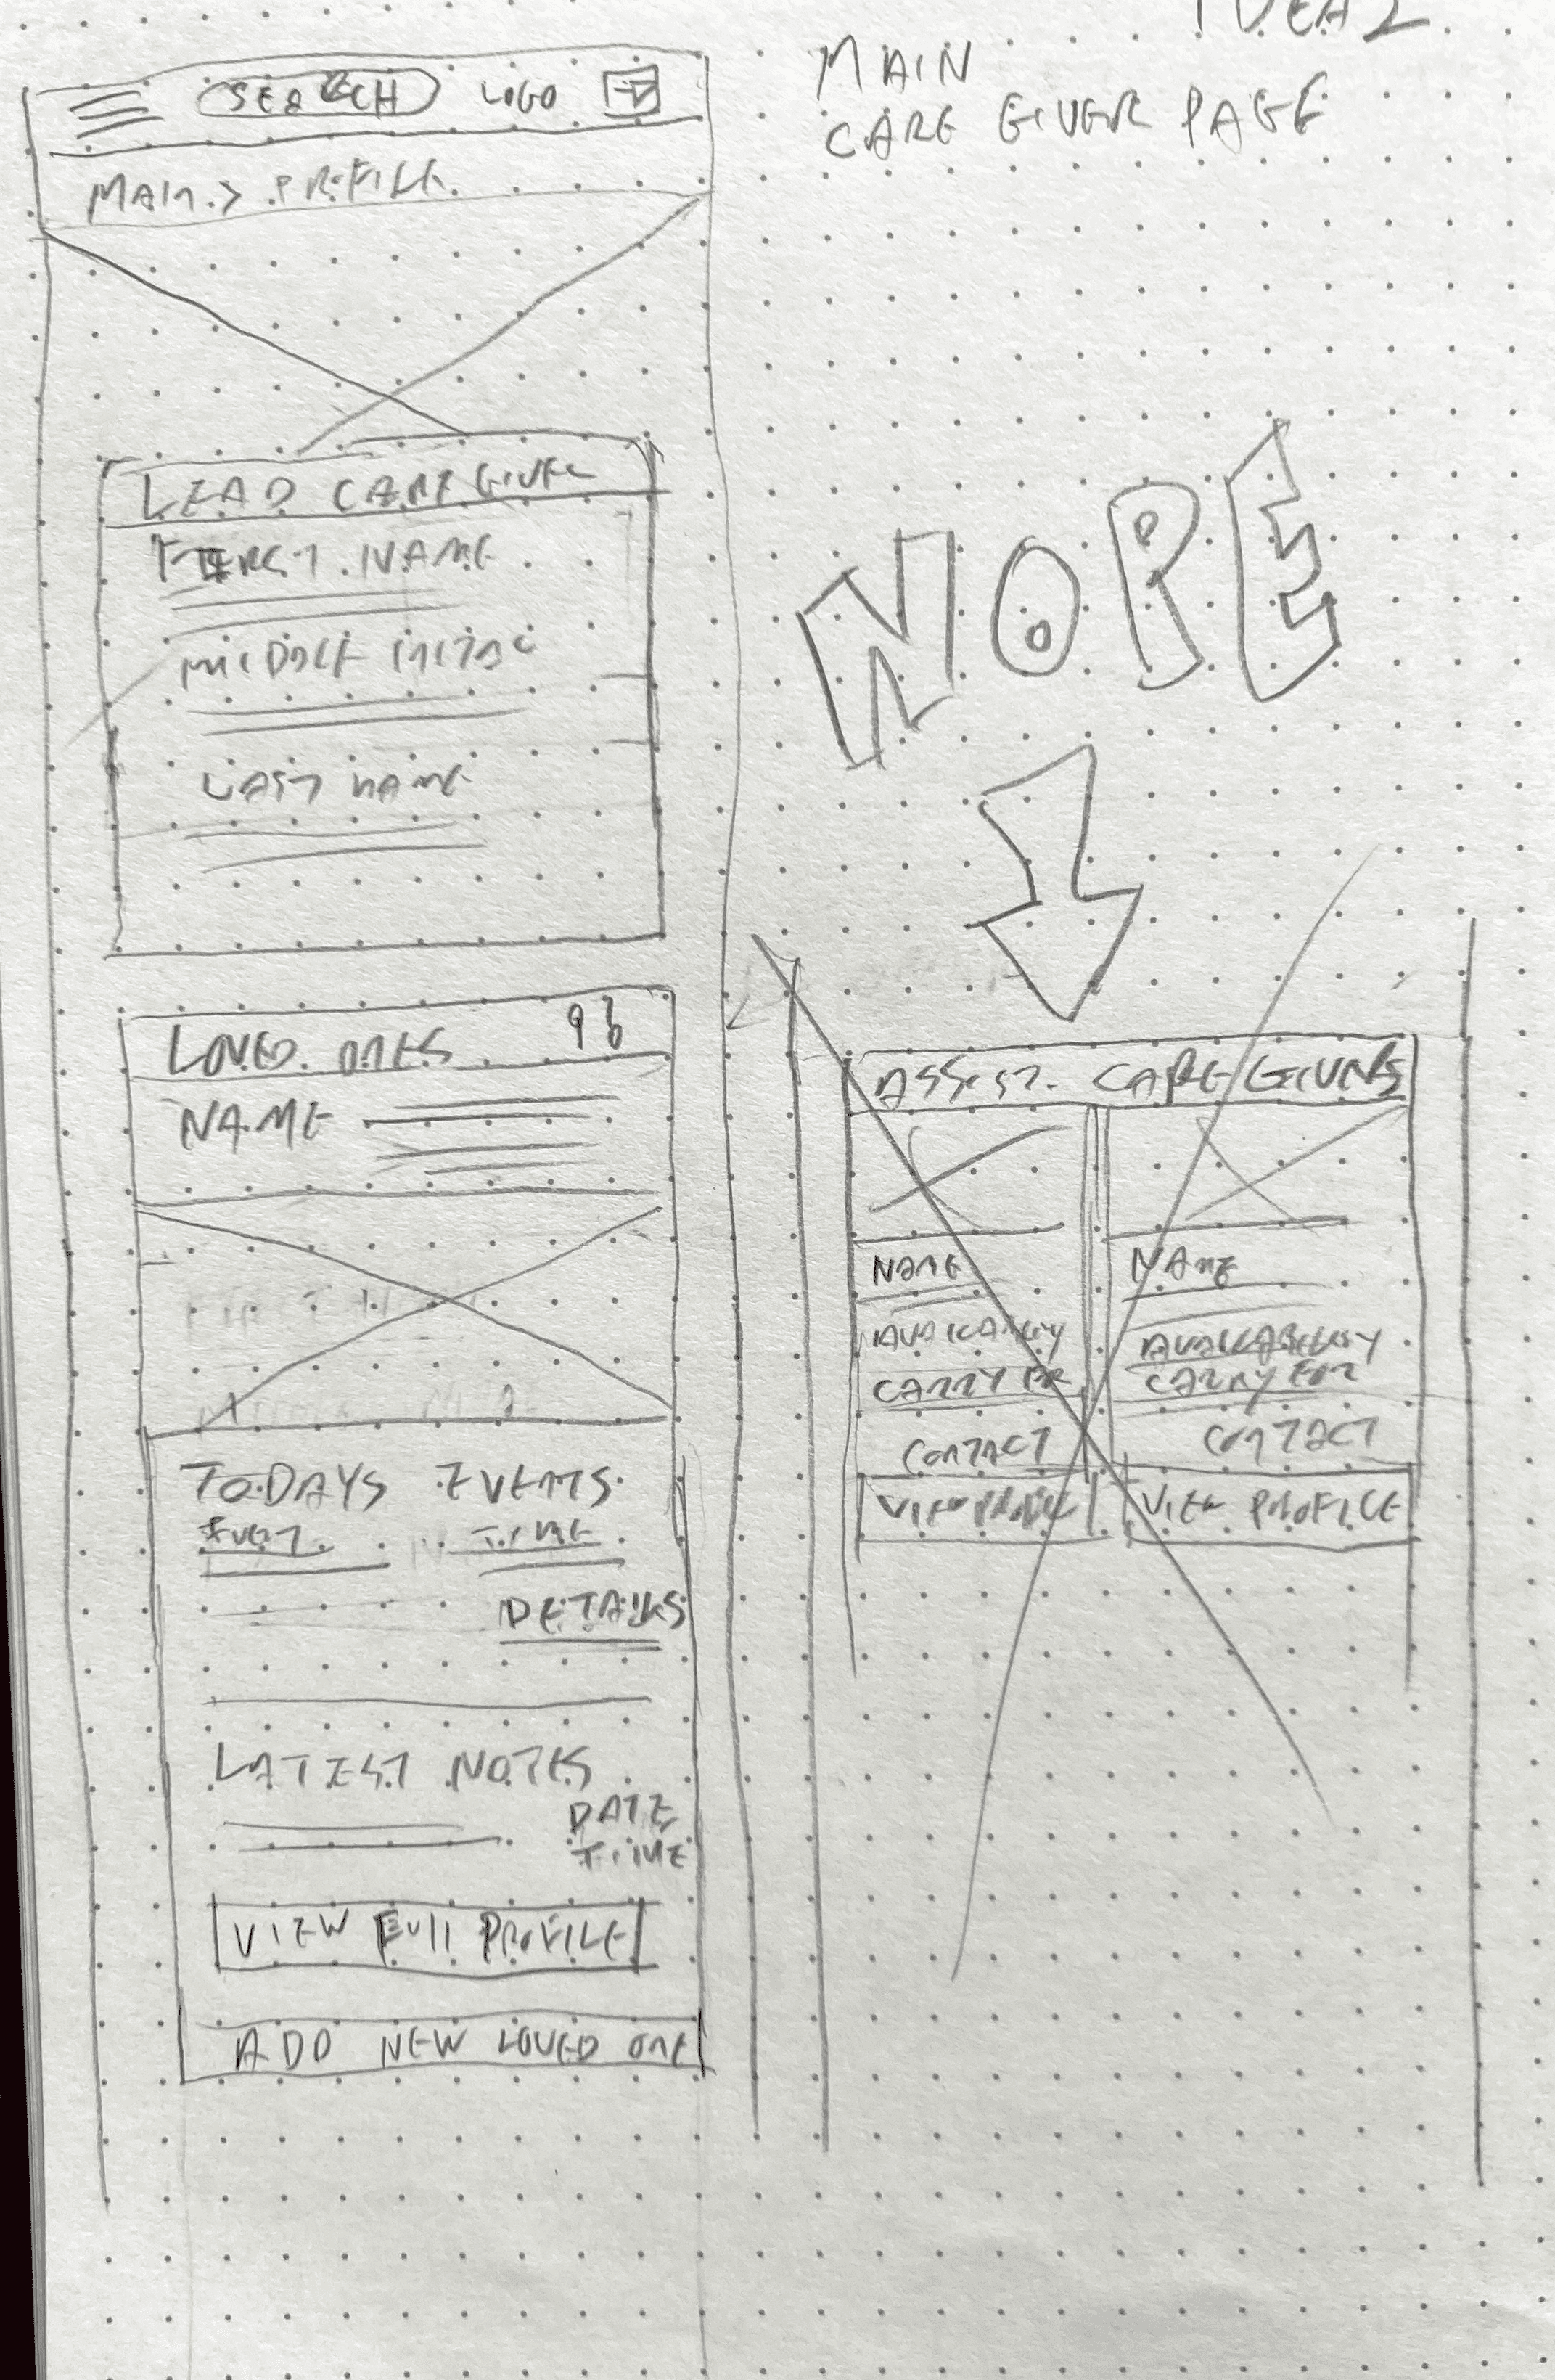 IDEA 2
MAIN
CARE GIVER PAGE
SEARCH LOGO
MAIN > PROFILE
LEAD CARE GIVER
FIRST NAME
MIDDLE INITIAL
LAST NAME
LOVED ONES
NAME
TODAYS EVENTS
EVENT TIME
DETAILS
LATEST NOTES
DATE
TIME
VIEW FULL PROFILE
ADD NEW LOVED ONE
NOPE
ASSIST. CARE GIVERS
NAME NAME
AVAILABILITY AVAILABILITY
CONTACT CONTACT
VIEW PROFILE VIEW PROFILE